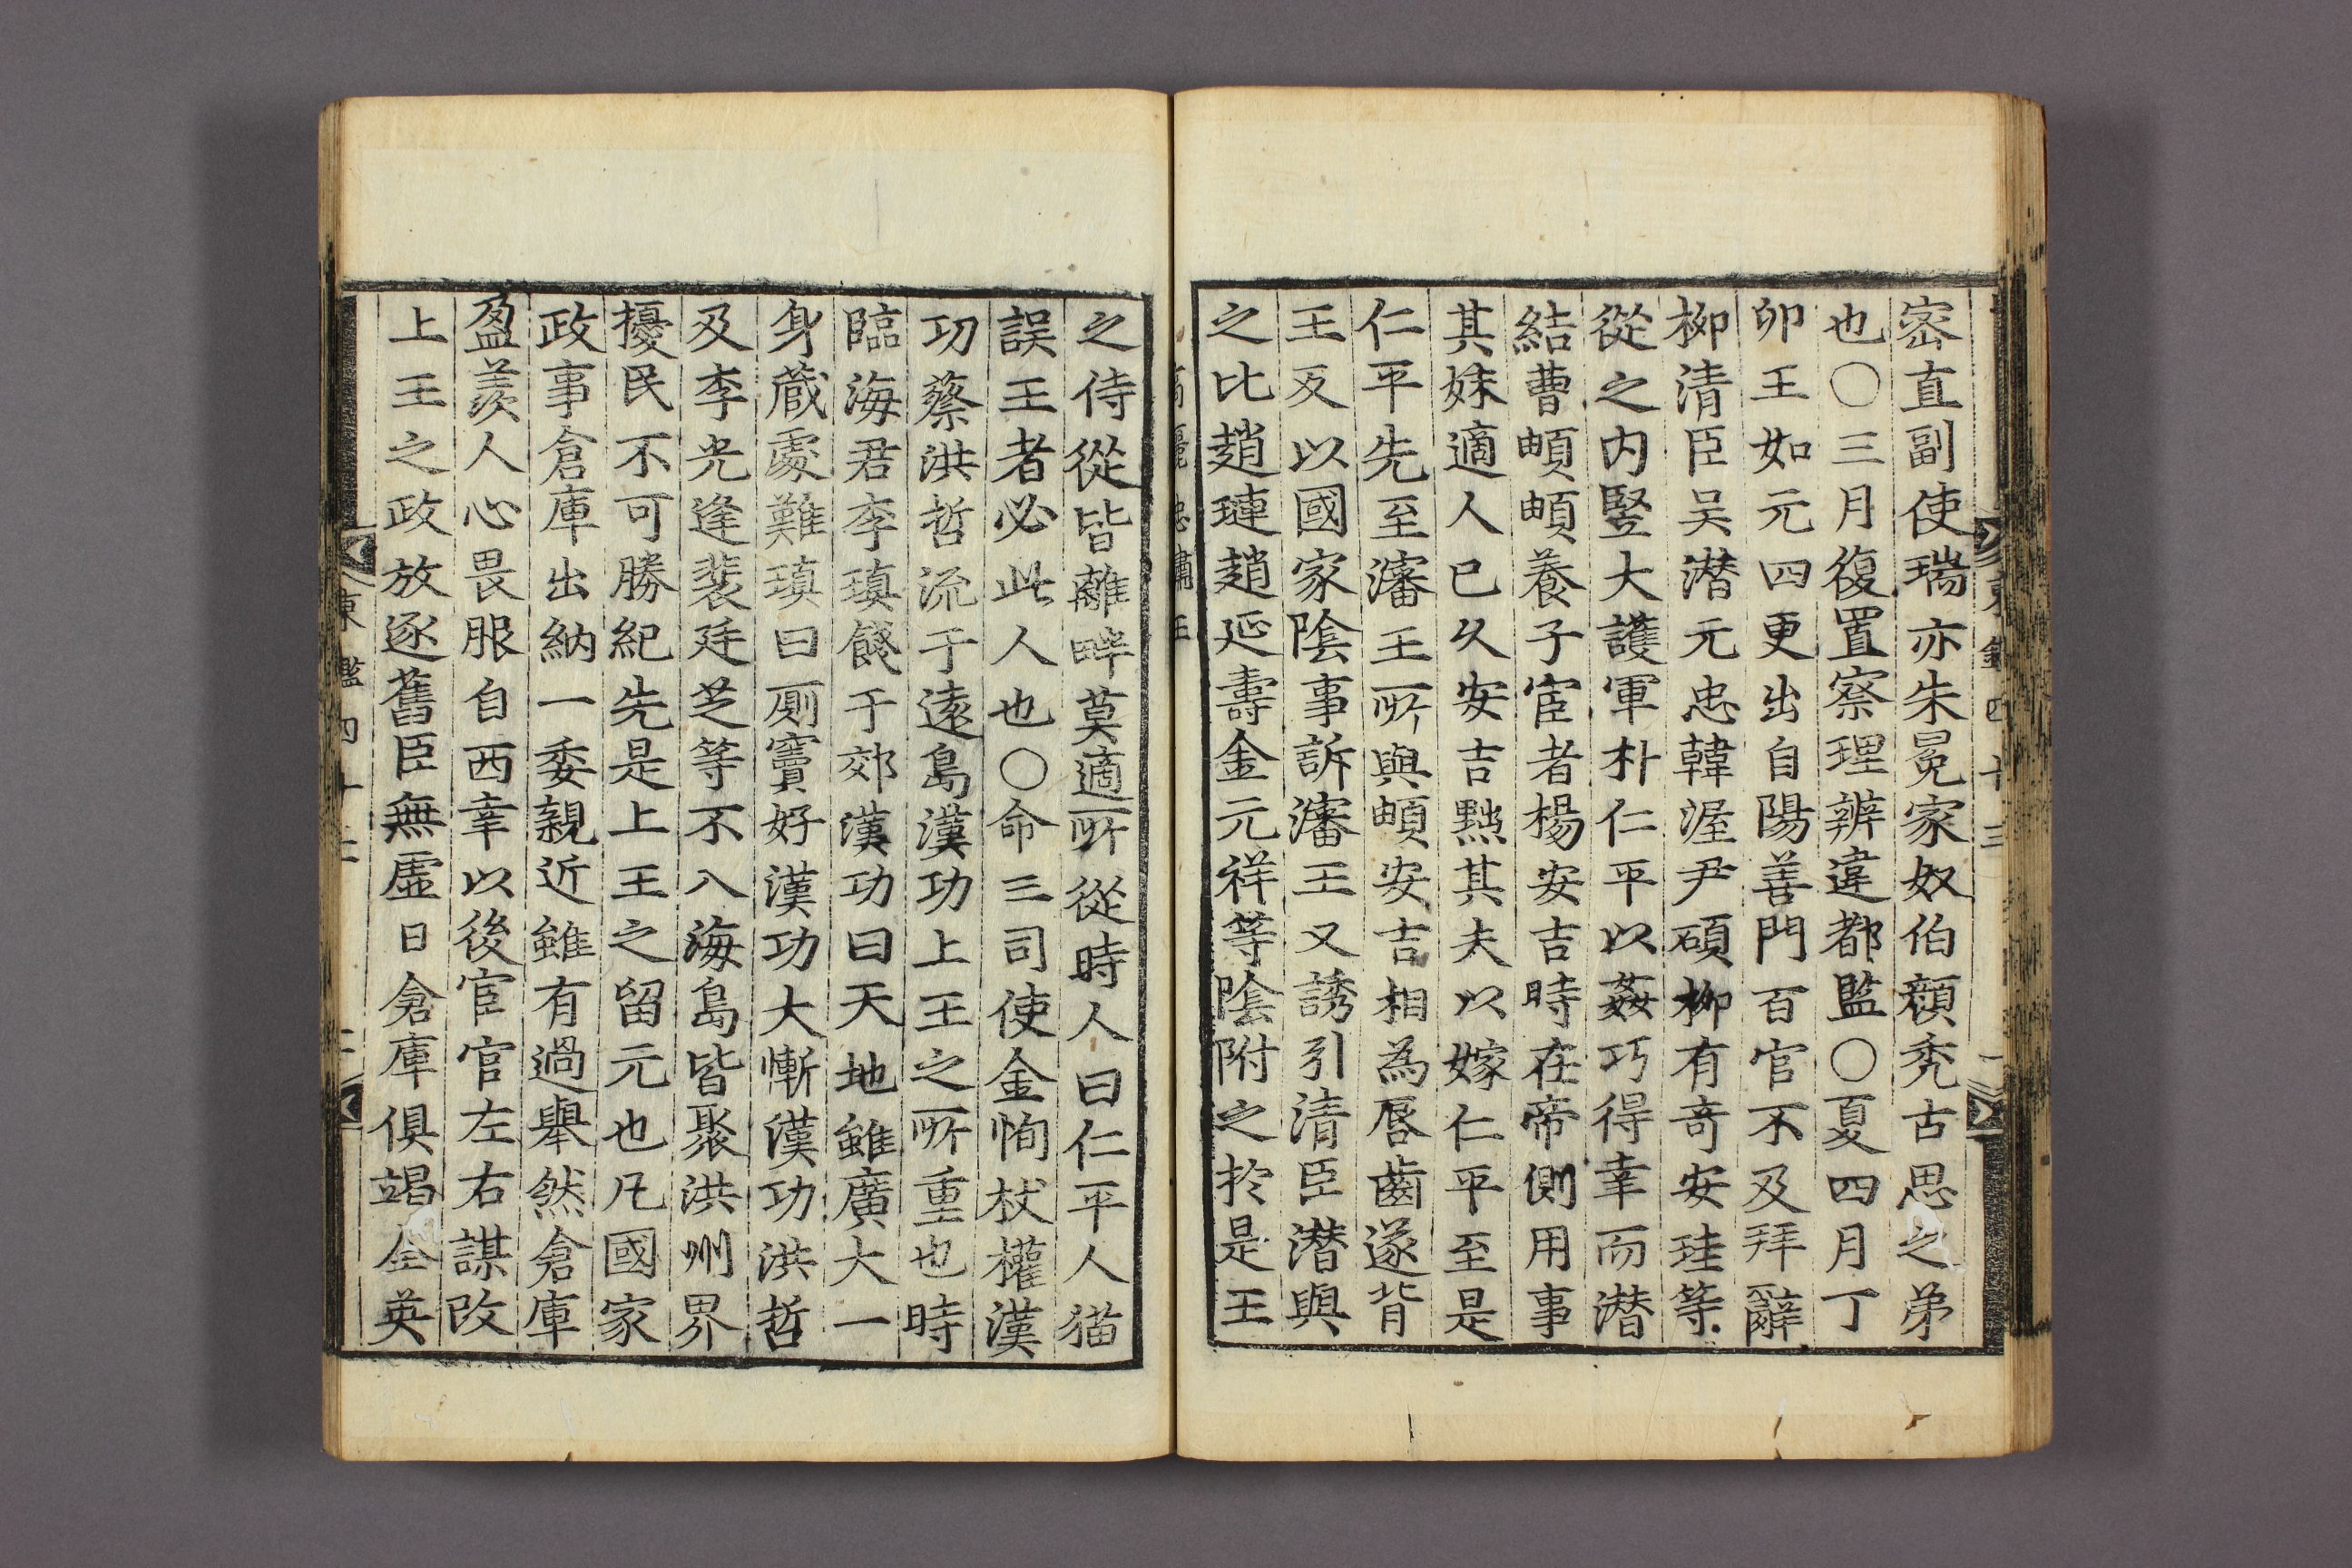 密直副使瑞亦朱冕家奴伯顔禿古思之弟
也○三月復置察理辨違都監○夏四月丁
卯王如元四更出自陽善門百官不及拜辭
柳清臣吴潜元忠韓渥尹碩柳有竒安珪等
從之内竪大護軍朴仁平以姦巧得幸而潜
結曹頔頔養子宦者楊安吉時在帝側用事
其妹適人已久安吉黜其夫以嫁仁平至是
仁平先至瀋王所與頔安吉相為唇齒遂背
王反以國家隂事訴瀋王又誘引清臣潜與
之比趙璉趙延壽金元祥等隂附之於是王
高麗忠肅王
之侍從皆離畔莫適所從時人曰仁平人猫
誤王者必此人也○命三司使金恂杖權漢
功蔡洪哲流于遠島漢功上王之所重也時
臨海君李瑱餞于郊漢功曰天地雖廣大一
身蔵處難瑱曰厠竇好漢功大慚漢功洪哲
及李光逢裴廷芝等不入海島皆聚洪州界
擾民不可勝紀先是上王之留元也凡國家
政事倉庫出納一委親近雖有過舉然倉庫
盈羡人心畏服自西幸以後宦官左右謀改
上王之政放逐舊臣無虚日倉庫俱竭金英
東鑑四十三